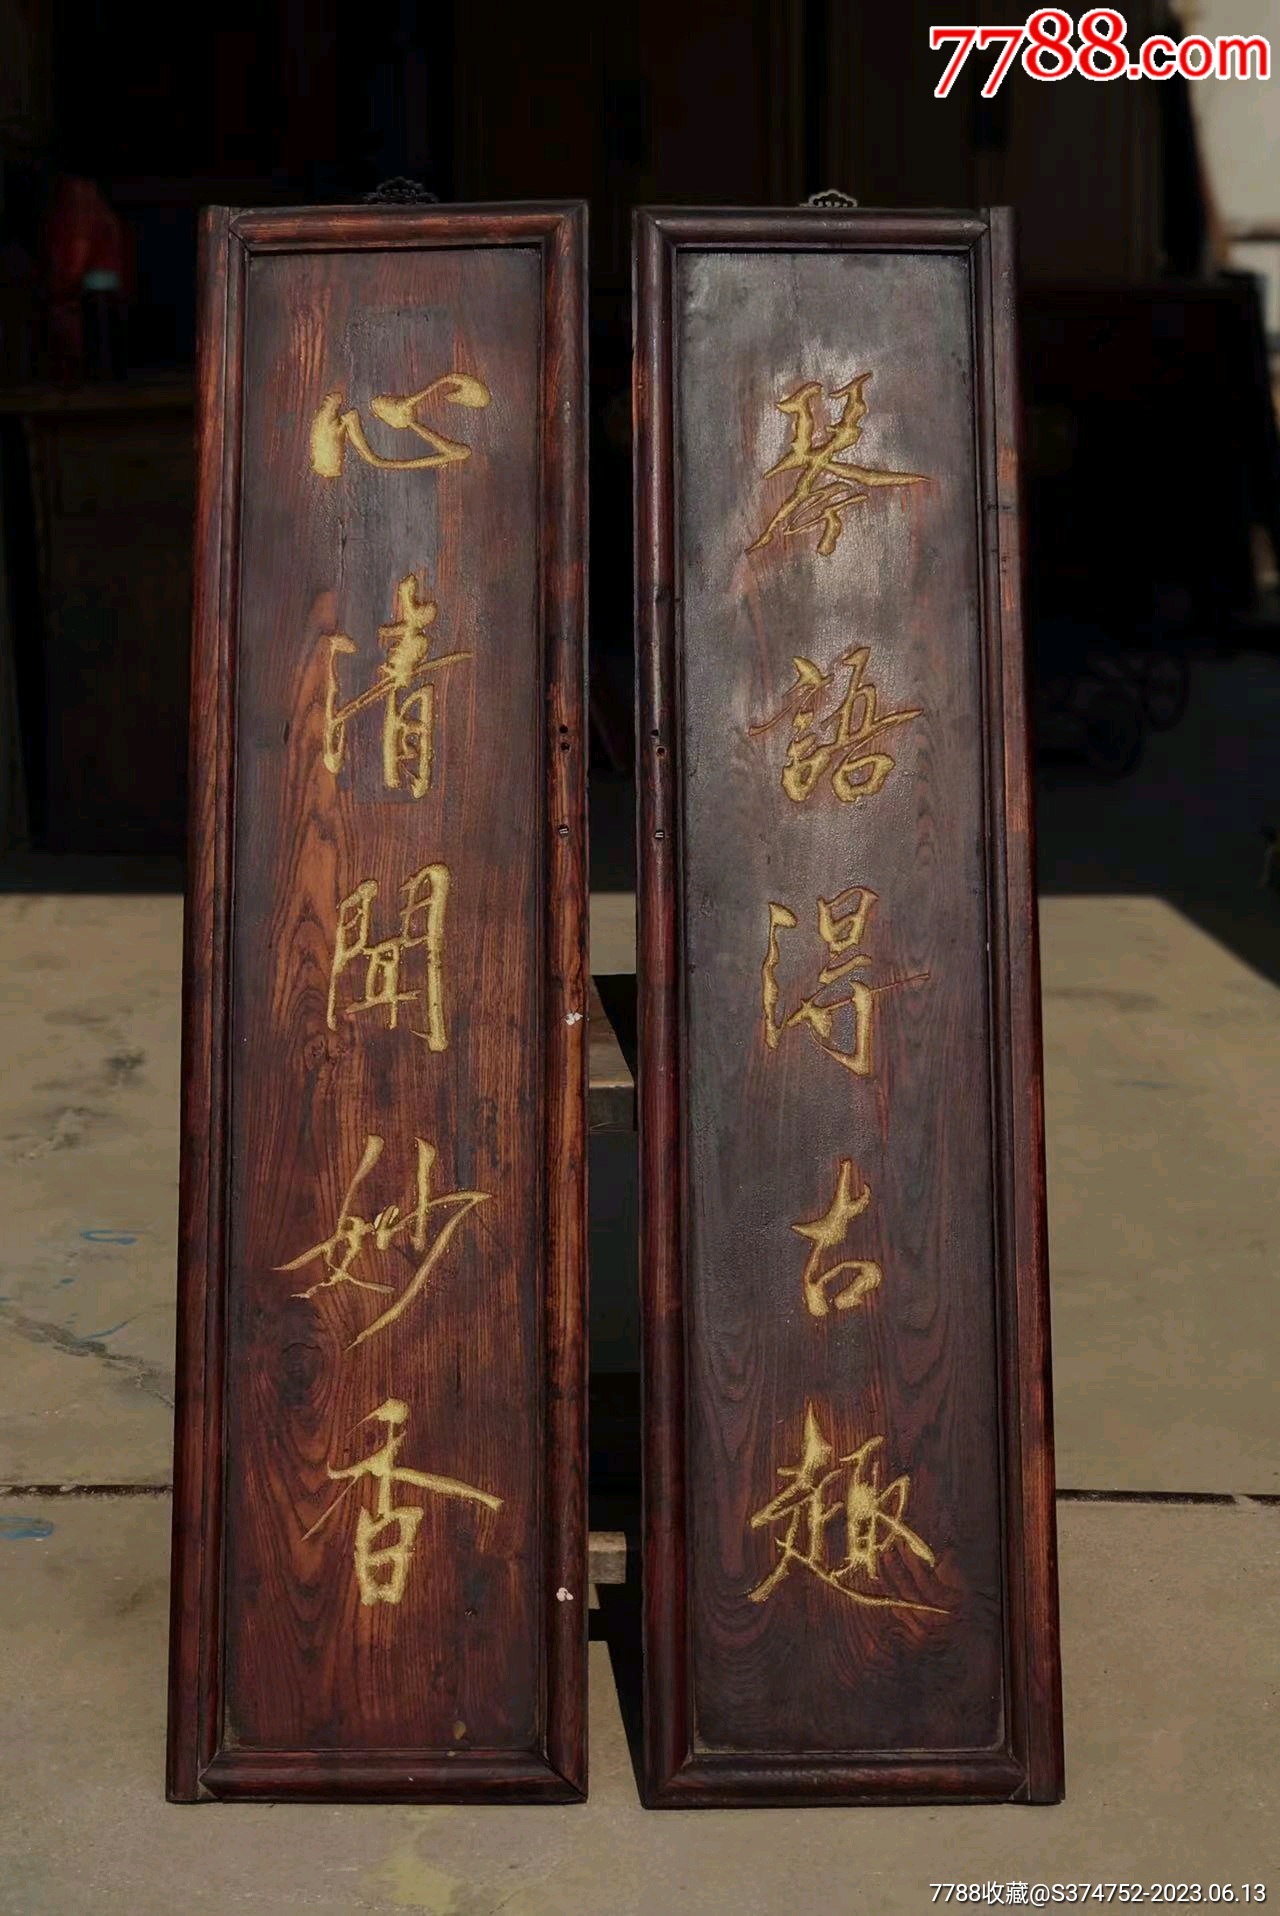 7788.com
琴語得古趣
心清聞妙香
7788收藏@S374752-2023.06.13